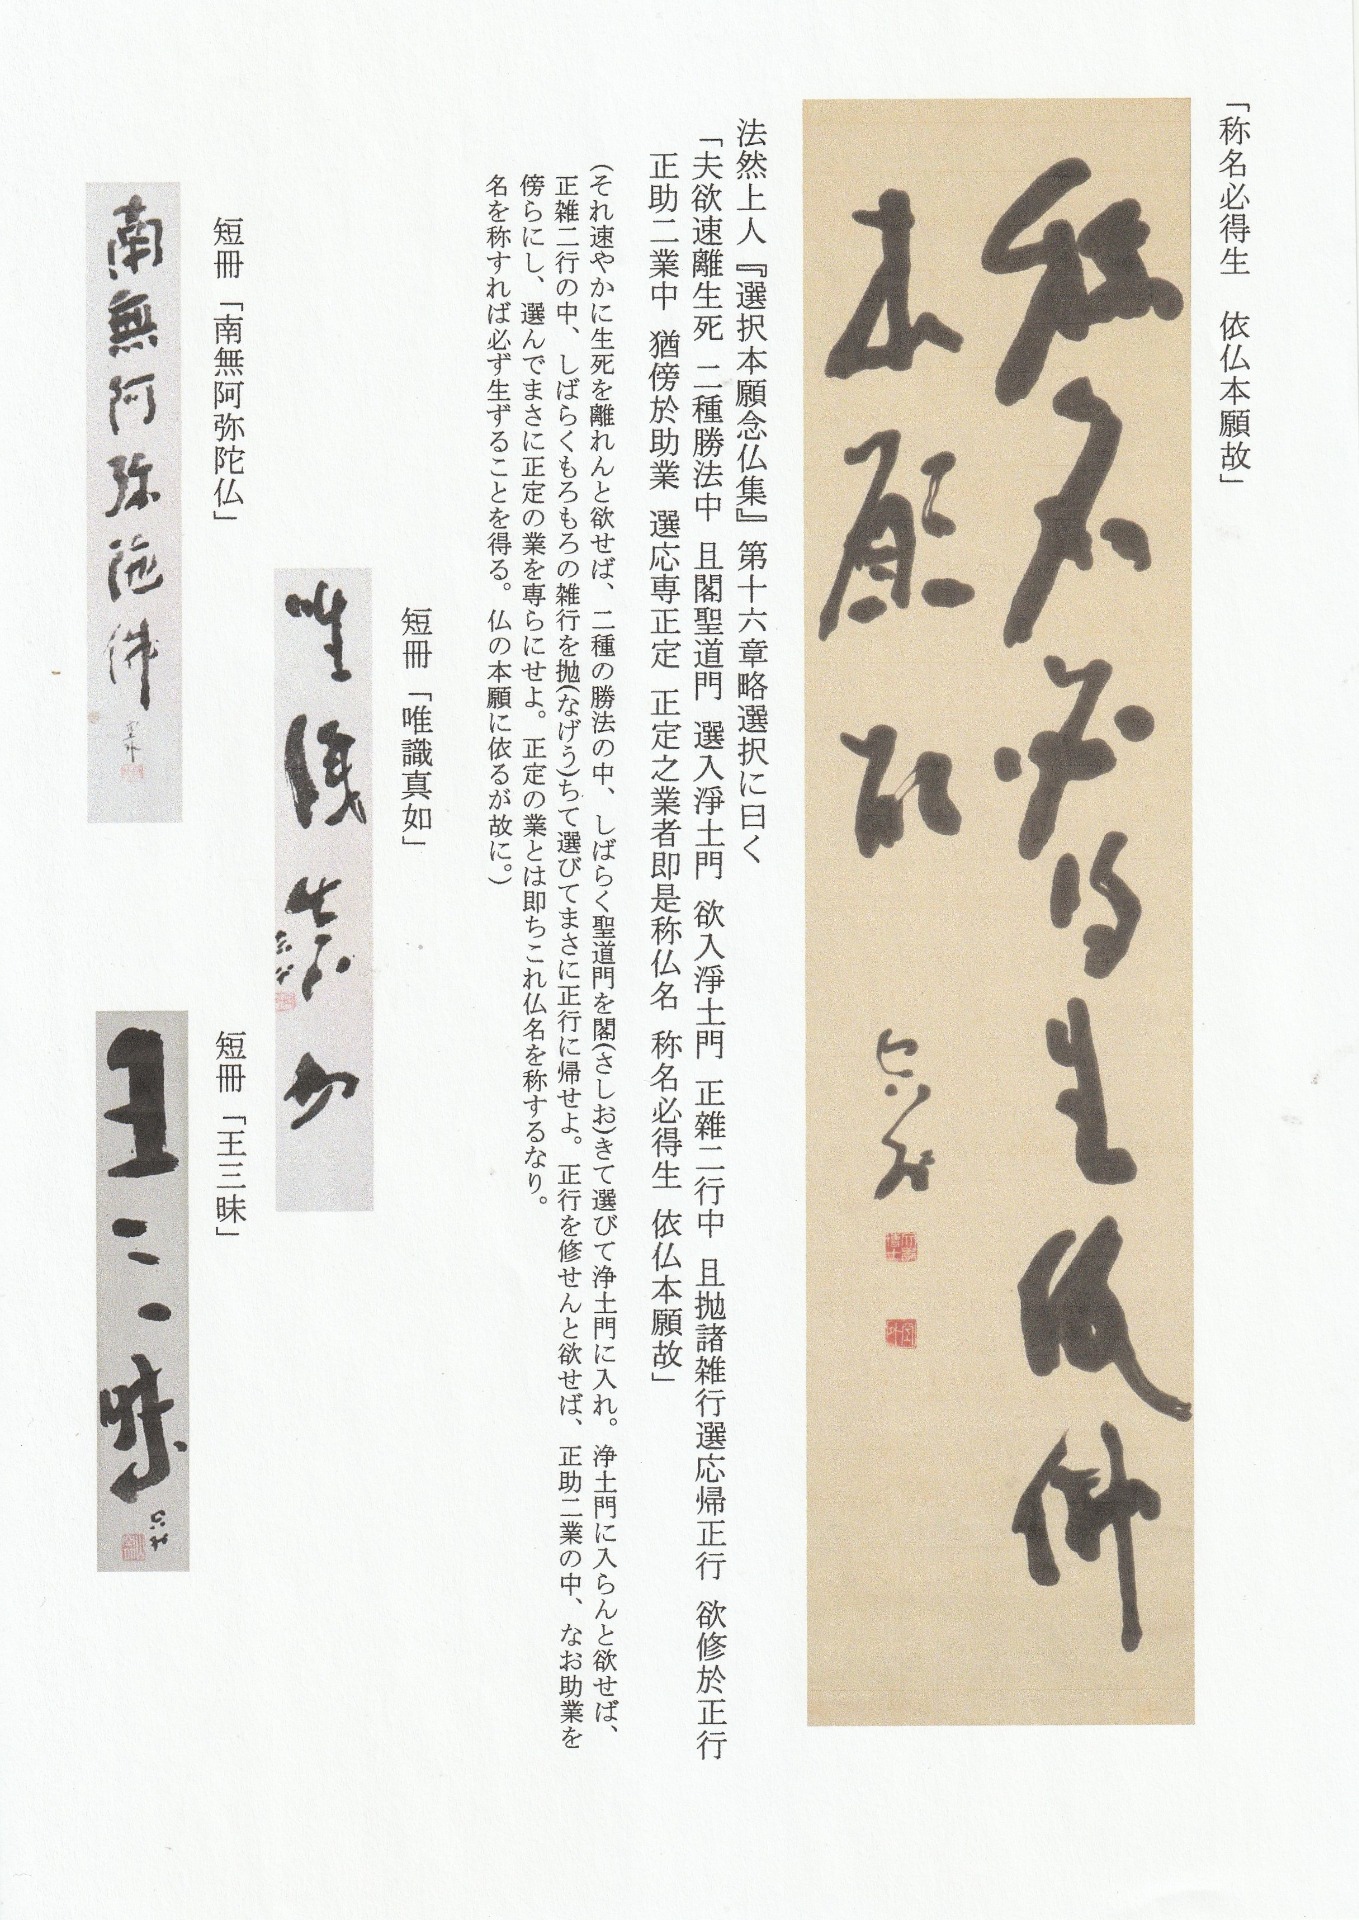 「称名必得生　依仏本願故」
称名必得生依佛
本願故
法然上人『選択本願念仏集』第十六章略選択に曰く
「夫欲速離生死 二種勝法中 且閣聖道門 選入淨土門 欲入淨土門 正雜二行中 且抛諸雑行選応帰正行 欲修於正行
正助二業中 猶傍於助業 選応専正定 正定之業者即是称仏名 称名必得生 依仏本願故」
(それ速やかに生死を離れんと欲せば、二種の勝法の中、しばらく聖道門を閣(さしお)きて選びて浄土門に入れ。浄土門に入らんと欲せば、
正雑二行の中、しばらくもろもろの雑行を抛(なげう)ちて選びてまさに正行に帰せよ。正行を修せんと欲せば、正助二業の中、なお助業を
傍らにし、選んでまさに正定の業を専らにせよ。正定の業とは即ちこれ仏名を称するなり。
名を称すれば必ず生ずることを得る。仏の本願に依るが故に。)
短冊「唯識真如」
唯識真如
短冊「南無阿弥陀仏」
南無阿弥陀佛
短冊「王三昧」
王三昧